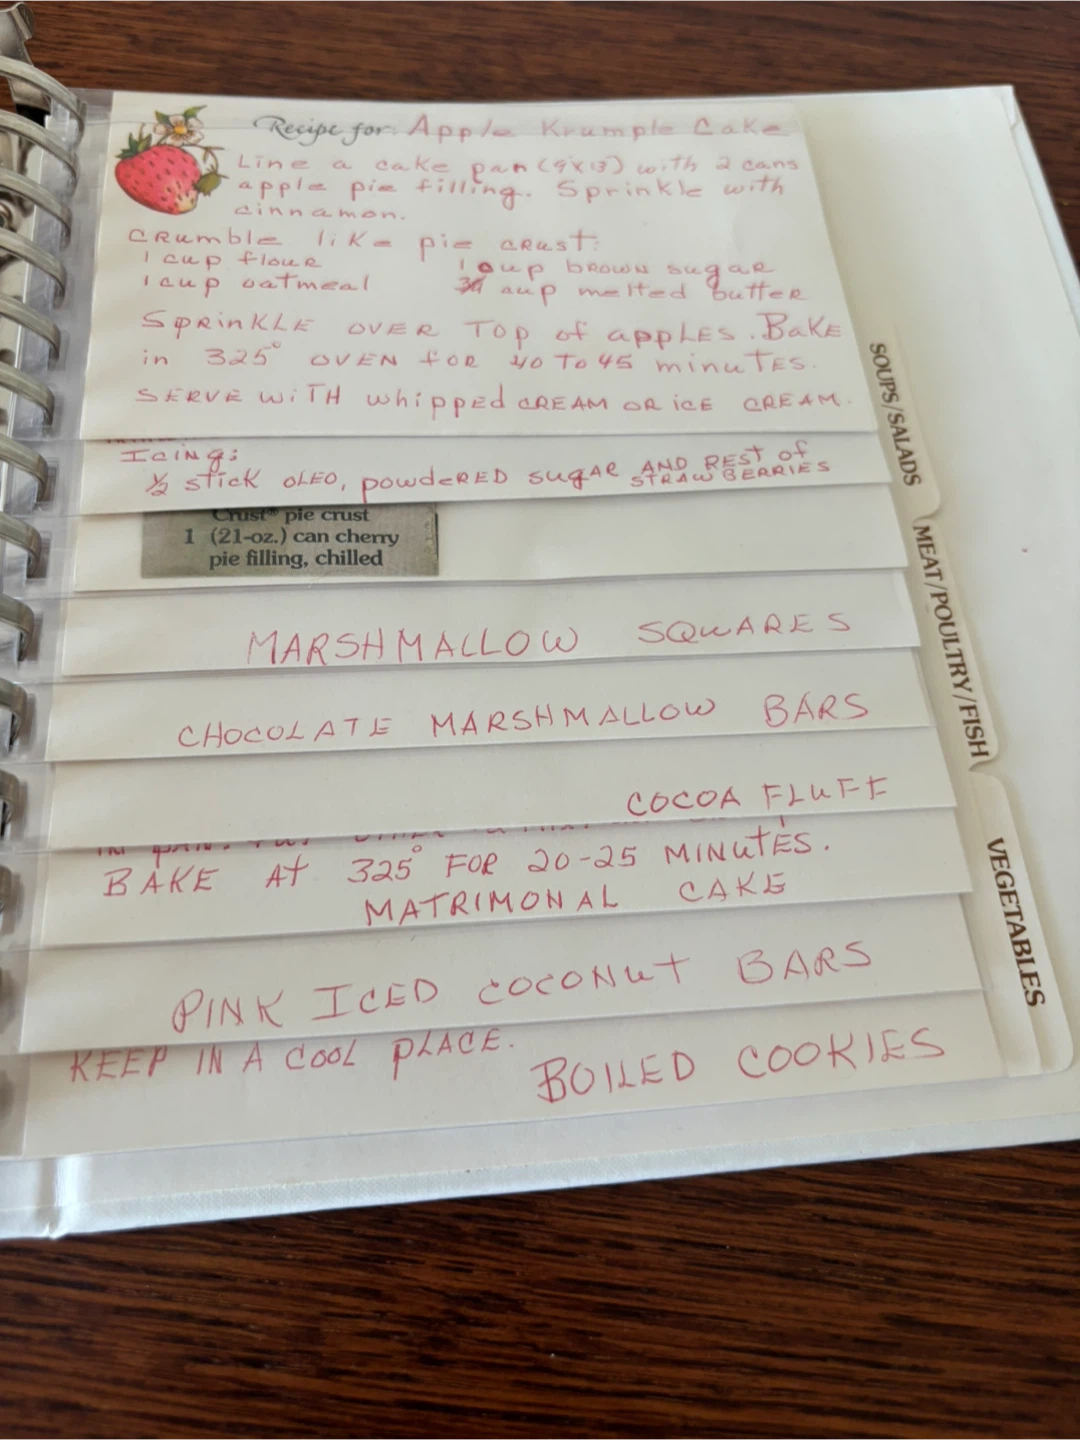 Recipe for: Apple Krumple Cake
Line a cake pan (9x13) with 2 cans
apple pie filling. Sprinkle with
cinnamon.
Crumble like pie crust:
1 cup flour 1 cup brown sugar
1 cup oatmeal cup melted butter
Sprinkle over top of apples. Bake
in 325° oven for 40 to 45 minutes.
Serve with whipped cream or ice cream.
Icing:
½ stick oleo, powdered sugar and rest of
strawberries
Crust® pie crust
1 (21-oz.) can cherry
pie filling, chilled
MARSHMALLOW SQUARES
CHOCOLATE MARSHMALLOW BARS
COCOA FLUFF
BAKE AT 325° FOR 20-25 MINUTES.
MATRIMONAL CAKE
PINK ICED COCONUT BARS
KEEP IN A COOL PLACE.
BOILED COOKIES
SOUPS/SALADS
MEAT/POULTRY/FISH
VEGETABLES